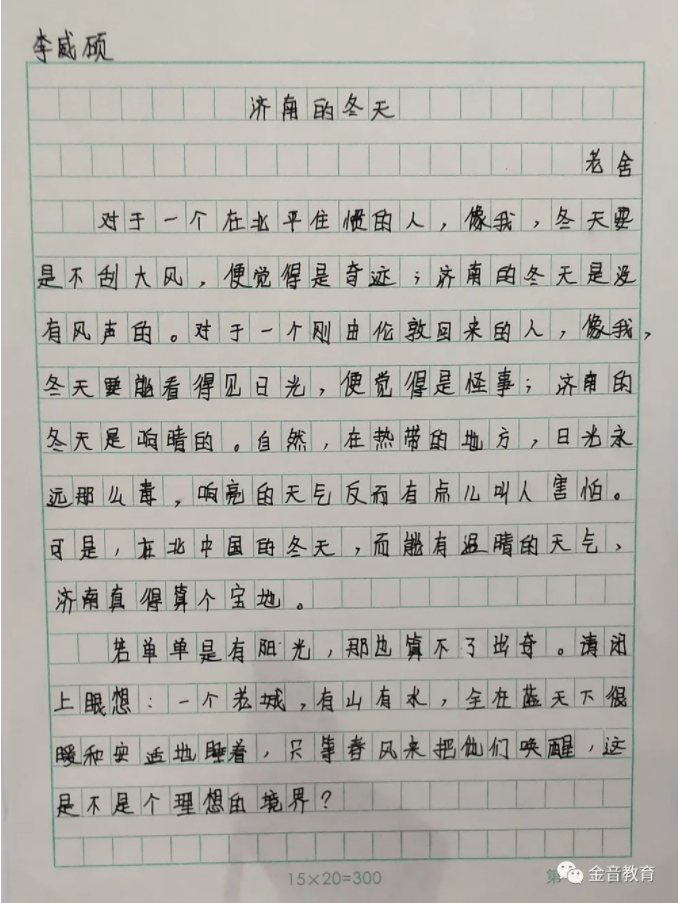 李威硕
济南的冬天
老舍
对于一个在北平住惯的人，像我，冬天要
是不刮大风，便觉得是奇迹；济南的冬天是没
有风声的。对于一个刚由伦敦回来的人，像我，
冬天要能看得见日光，便觉得是怪事；济南的
冬天是响晴的。自然，在热带的地方，日光永
远那么毒，响亮的天气反而有点儿叫人害怕。
可是，在北中国的冬天，而能有温晴的天气，
济南真得算个宝地。
若单单是有阳光，那也算不了出奇。请闭
上眼想：一个老城，有山有水，全在蓝天下很
暖和安适地睡着，只等春风来把他们唤醒，这
是不是个理想的境界？
15×20=300
第
金音教育